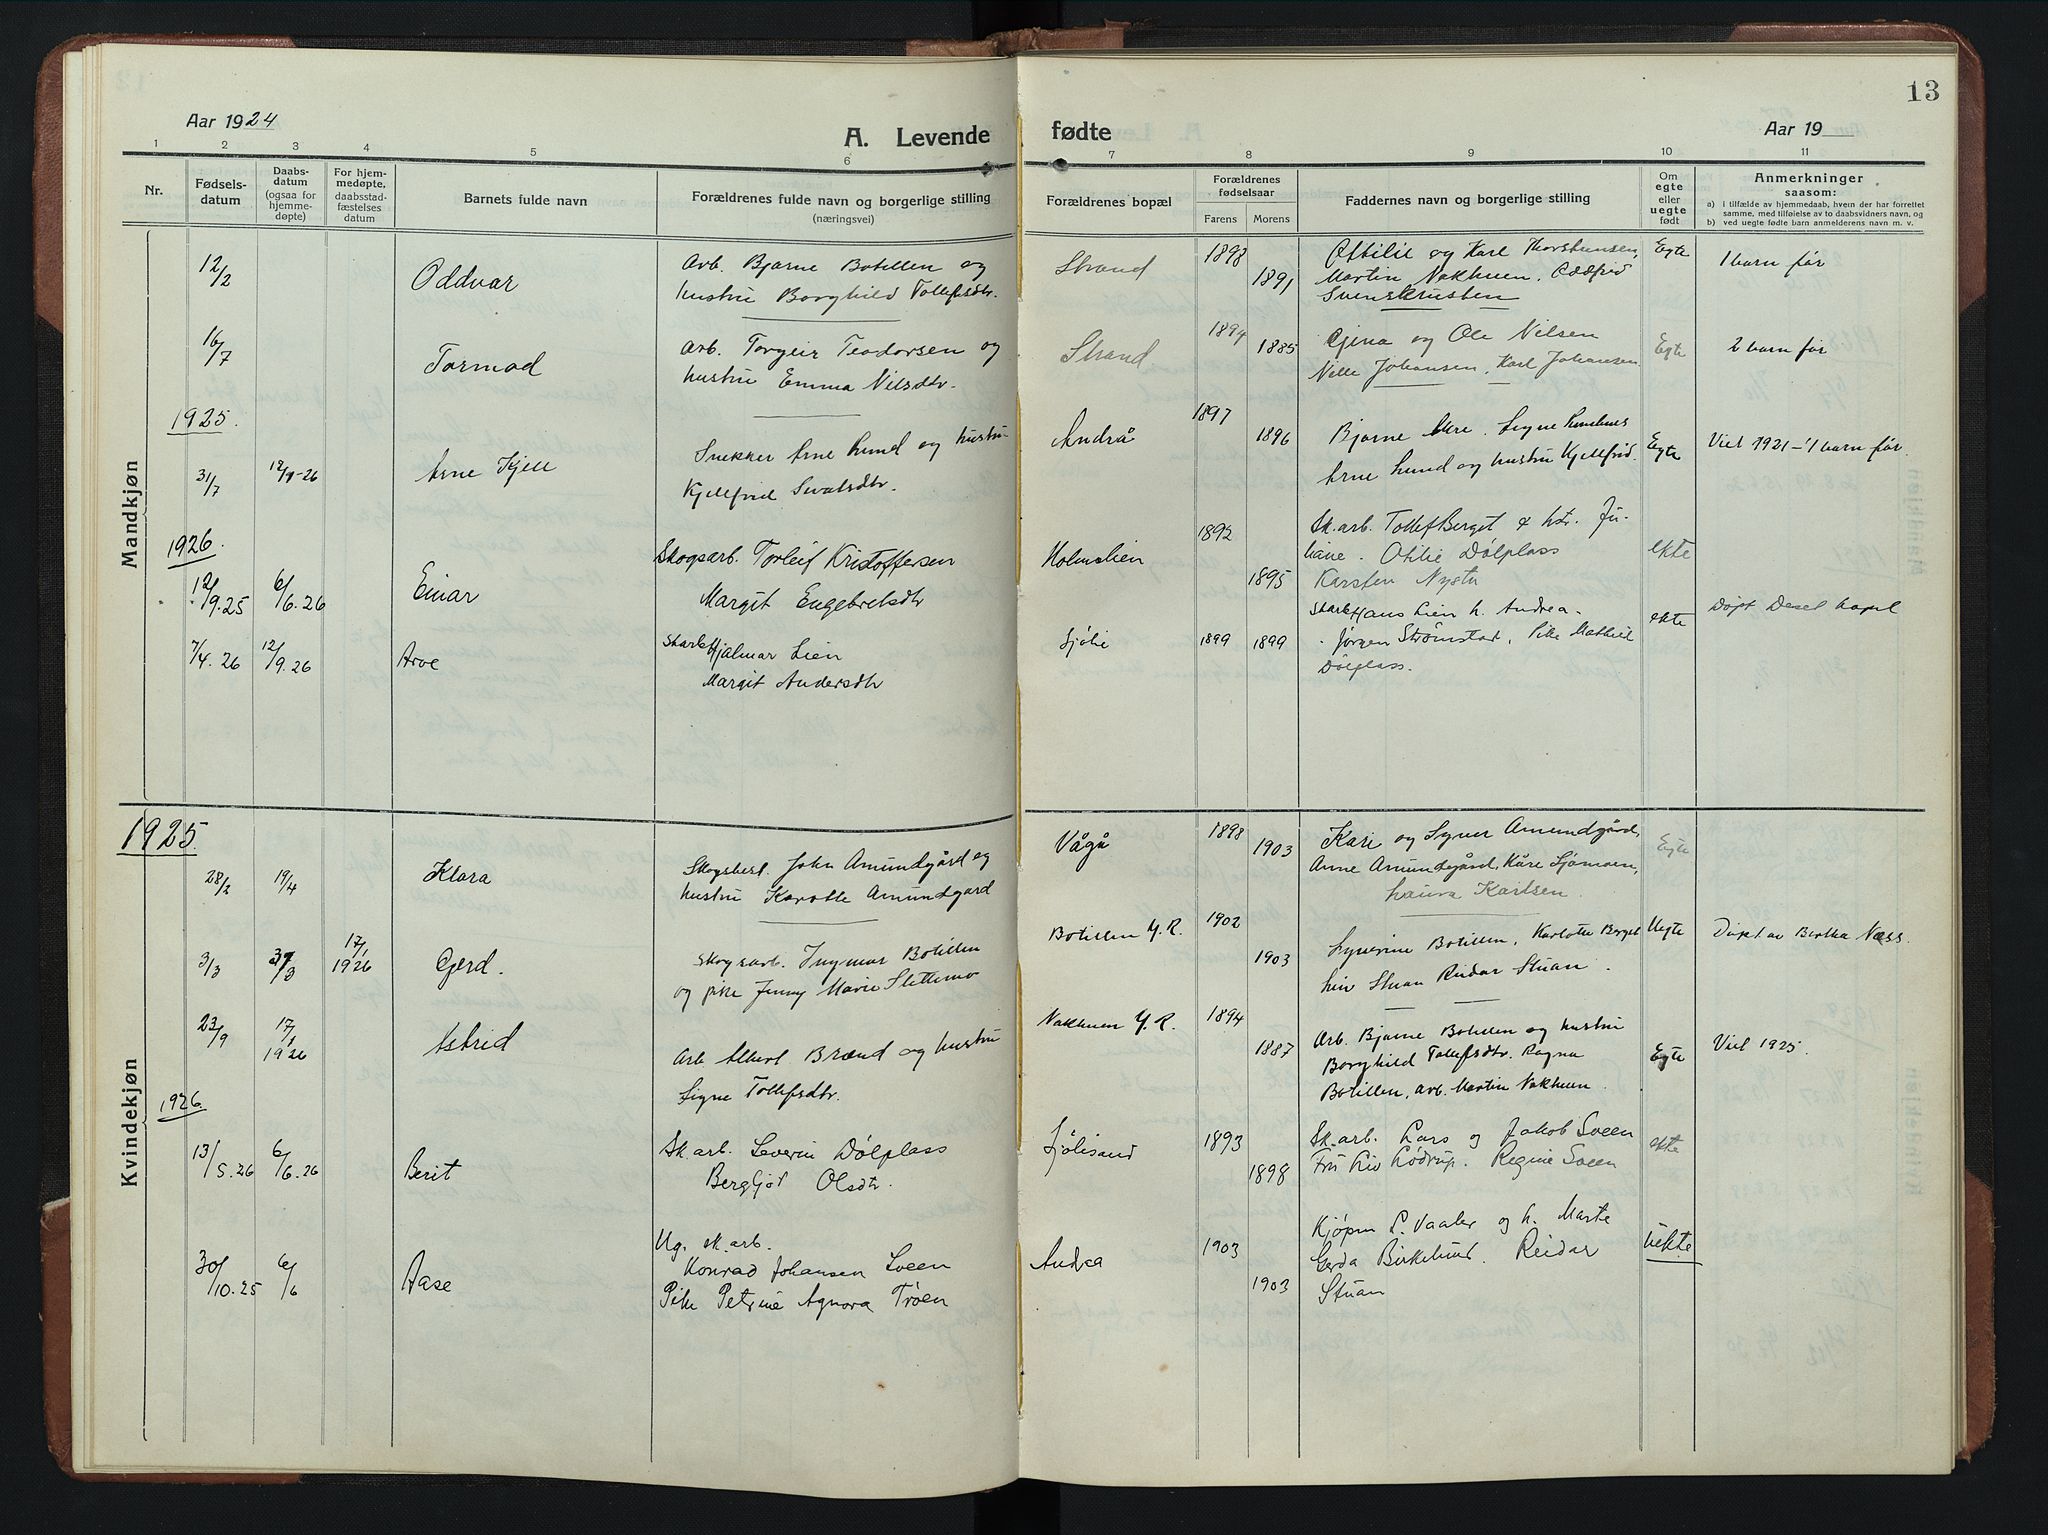 13
Aar 1924
A. Levende fødte
Aar 19
1 2 3 4 5 6 7 8 9 10 11
Nr.
Fødsels-
datum
Daabs-
datum
(ogsaa for
hjemme-
døpte)
For hjem-
medøpte,
daabsstad-
fæstelses
datum
Barnets fulde navn
Forældrenes fulde navn og borgerlige stilling
(næringsvei)
Forældrenes bopæl
Forældrenes
fødselsaar
Farens Morens
Faddernes navn og borgerlige stilling
Om
egte
eller
uegte
født
Anmerkninger
saasom:
a) i tilfælde av hjemmedaab, hvem der har forrettet
samme, med tilføielse av to daabsvidners navn, og
b) ved uegte fødte barn anmelderens navn m. v.
Mandkjøn
12/2 Oddvar
Arb. Bjarne Botillen og
hustru Borghild Tollefsdtr.
Strand 1893 1891
Othilie og Karl Thorstensen,
Martin Nakhuen, Oddfrid
Svenskrusten
Egte
1 barn før
16/7 Tormod
Arb. Torgeir Teodorsen og
hustru Emma Nilsdtr.
Strand 1894 1885
Gjina og Ole Nilsen
Nelle Johansen, Karl Johansen
Egte
2 barn før
1925.
31/7 12/9-26 Arne Kjell
Snekker Arne Lund og hustru
Kjellfrid Sivalsdtr.
Andrå 1897 1896
Bjarne Mre. Signe
Arne Lund og hustru Kjellfrid.
Egte
Viet 1921 - 1 barn før.
1926.
12/9.25 6/6.26 Einar
Skogsarb. Torleif Kristoffersen
Margit Engebretsdtr
Holmslien 1892 1895
Sk.arb. Tollef Berget & hstr. Ju-
liane. Othilie Dølplass
Karsten Nystu
ekte
7/4.26 12/9.26 Arve
Skarb Hjalmar Lien
Margit Andersdtr
Sjølie 1899 1899
Skarb Hans Lien h. Andrea.
Jørgen Strømstad, Pike Mathild
Dølplass.
ekte
Døpt Deset kapel
Kvindekjøn
1925.
28/2 19/4 Klara
Skogsbest. John Amundgård og
hustru Karotte Amundgard
Vågå 1898 1903
Kari og Syver Amundgård,
Anne Amundgård, Kåre Sjømoen,
Laura Karlsen.
Egte
3/3 17/1 1926 Gjerd.
Skogsarb. Ingmar Botillen
og pike Jenny Marie Slettemo
Botillen Y.R. 1902 1903
Syverine Botillen, Karlotte Berget
Liv Stuan Reidar Stuan.
Uegte
Døpt av Bertha Næss.
23/9 17/1 1926 Astrid
Arb. Albert Brænd og hustru
Signe Tollefsdtr.
Nakhuen Y.R. 1894 1887
Arb. Bjarne Botillen og hustru
Borghild Tollefsdtr. Ragna
Botillen, arb. Martin Nakhuen.
Egte
Viet 1925.
1926.
13/5.26 6/6.26 Berit
Sk.arb. Severin Dølplass
Bergljot Olsdtr.
Sjølisand 1893 1898
Sk.arb. Lars og Jakob Sveen
Fru Liv Lødrup. Regine Sveen
ekte
30/10.25 6/6 Aase
Ug. sk.arb.
Konrad Johansen Sveen
Pike Petrine Agnora Trøen
Andraa 1903 1903
Kjøpm P. Vaaler og h. Marte
Gerda Birkelund. Reidar
Stuan
uekte